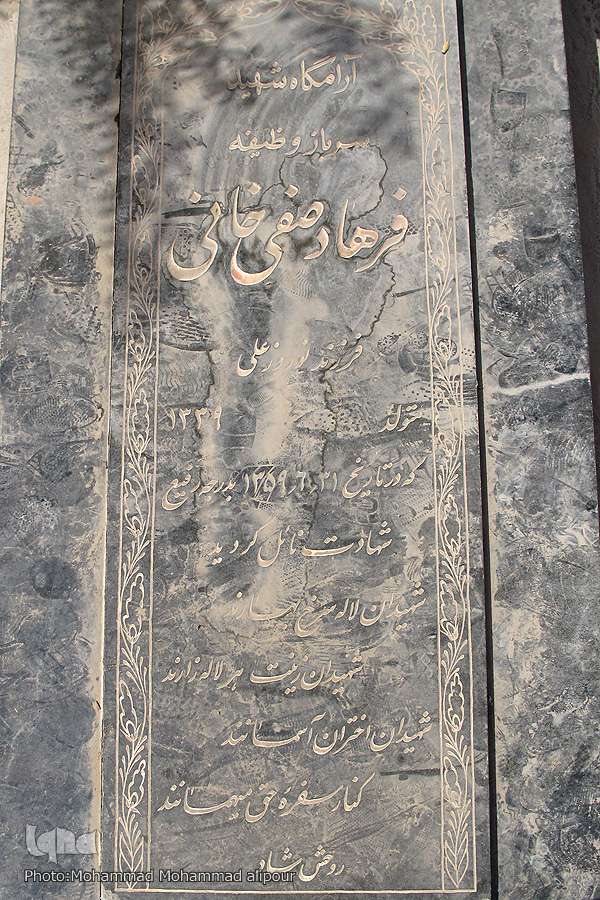 آرامگاه شهید
سرباز وظیفه
فرهاد صفی خانی
فرزند نوروزعلی
متولد ۱۳۳۹
که در تاریخ ۱۳۵۹٫۶٫۳۱ بدرجه رفیع
شهادت نائل گردید
شهیدان لاله سرخ بهارند
شهیدان زینت هر لاله زارند
شهیدان اختران آسمانند
کنار سفره حق میهمانند
روحش شاد
iqna
Photo:Mohammad Mohammad alipour